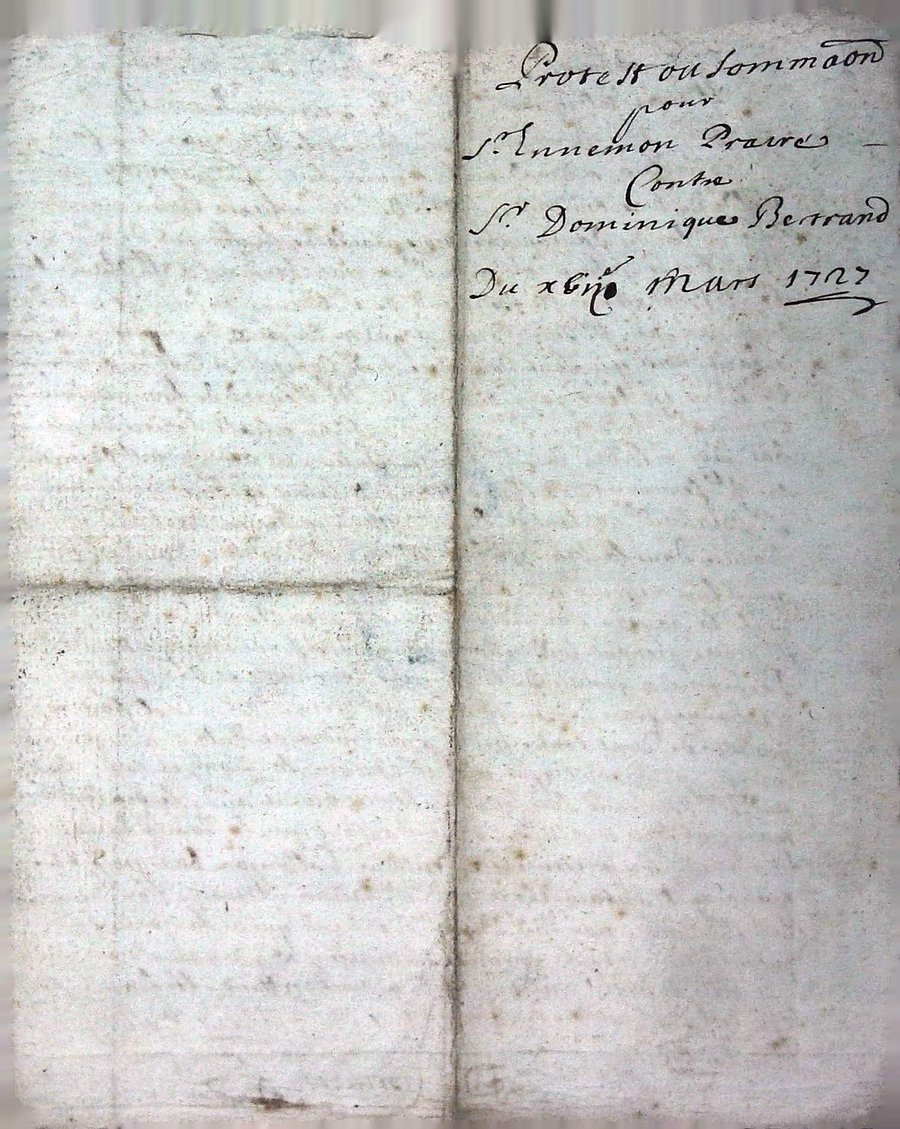 Protest ou sommaon
pour
Sr. Ennemon Praire
Contre
Sr. Dominique Bertrand
Du Mars 1727